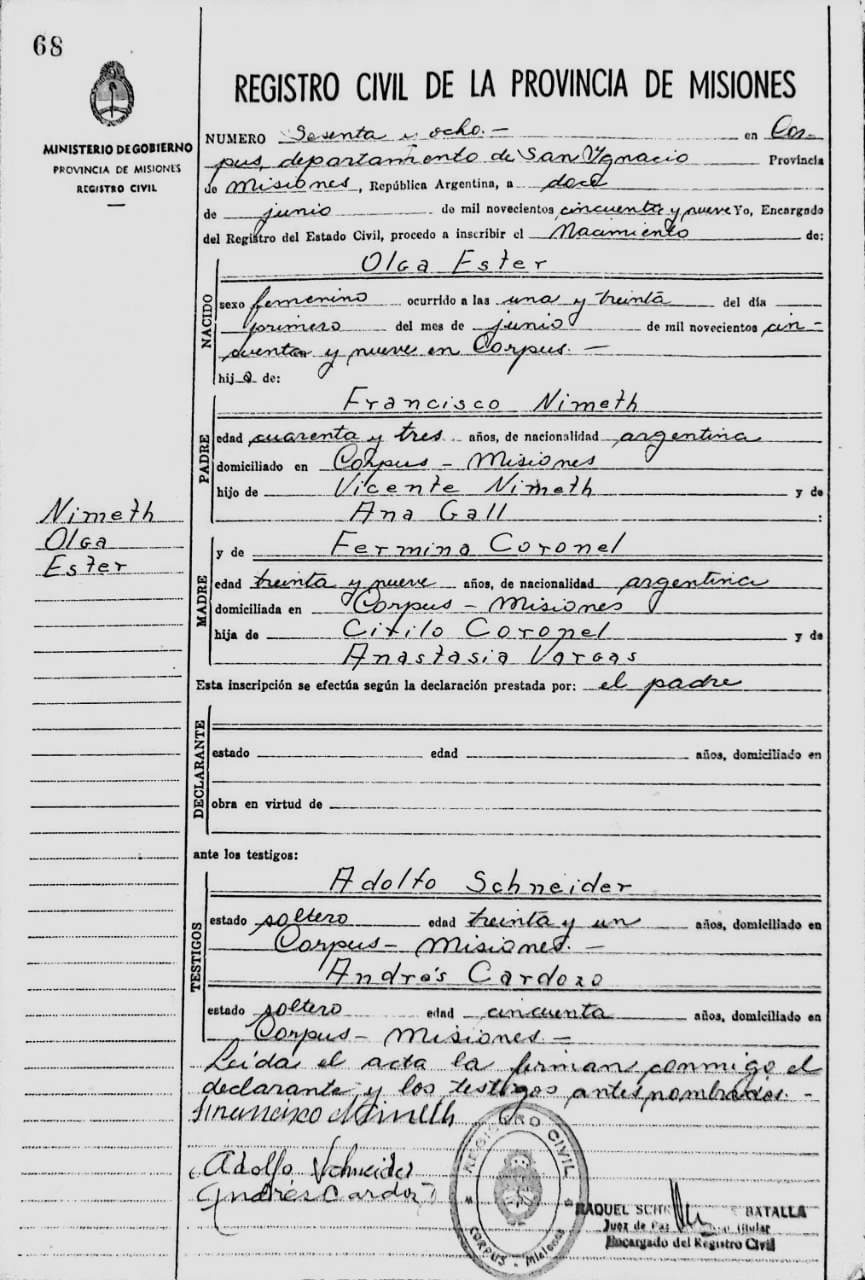 68
REGISTRO CIVIL DE LA PROVINCIA DE MISIONES
MINISTERIO DE GOBIERNO
PROVINCIA DE MISIONES
REGISTRO CIVIL
NUMERO Sesenta y ocho.- en Cor-
pus, departamento de San Ygnacio Provincia
de Misiones, República Argentina, a doce
de junio de mil novecientos cincuenta y nueve Yo, Encargado
del Registro del Estado Civil, procedo a inscribir el Nacimiento de:
NACIDO
Olga Ester
sexo femenino ocurrido a las una y treinta del día
primero del mes de junio de mil novecientos cin-
cuenta y nueve en Corpus.-
hija de:
PADRE
Francisco Nimeth
edad cuarenta y tres años, de nacionalidad argentina
domiciliado en Corpus - Misiones
hijo de Vicente Nimeth y de
Ana Gall :
Nimeth
Olga
Ester
MADRE
y de Fermina Coronel
edad treinta y nueve años, de nacionalidad argentina
domiciliada en Corpus - Misiones
hija de Cirilo Coronel y de
Anastasia Vargas
Esta inscripción se efectúa según la declaración prestada por: el padre
DECLARANTE
estado edad años, domiciliado en
obra en virtud de
ante los testigos:
TESTIGOS
Adolfo Schneider
estado soltero edad treinta y un años, domiciliado en
Corpus - Misiones.-
Andrés Cardozo
estado soltero edad cincuenta años, domiciliado en
Corpus - Misiones.-
Leída el acta la firman conmigo el
declarante y los testigos antes nombrados.-
Francisco Nimeth
Adolfo Schneider
Andrés Cardozo
REGISTRO CIVIL
CORPUS - Misiones
RAQUEL BATALLA
Juez de Paz Titular
Encargado del Registro Civil